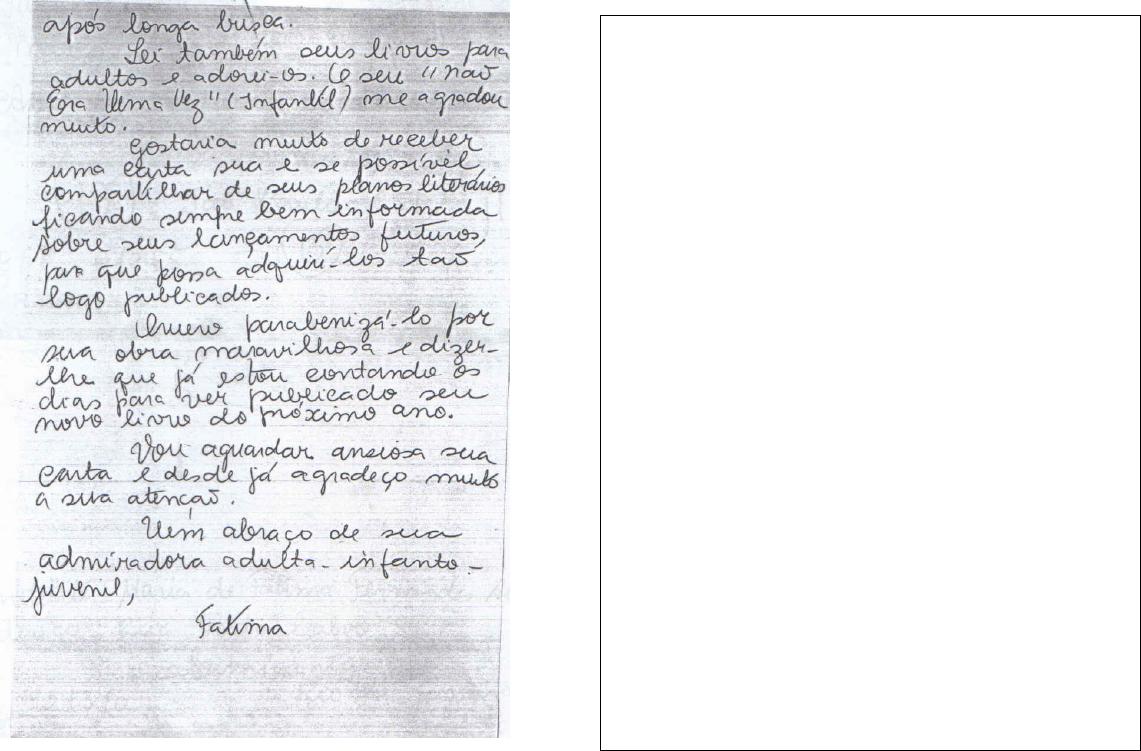 após longa busca.
Lei também seus livros para
adultos e adorei-os. O seu "Não
Era Uma Vez" (Infantil) me agradou
muito.
Gostaria muito de receber
uma carta sua e se possível
compartilhar de seus planos literários
ficando sempre bem informada
sobre seus lançamentos futuros,
para que possa adquirí-los tão
logo publicados.
Quero parabenizá-lo por
sua obra maravilhosa e dizer-
lhe que já estou contando os
dias para ver publicado seu
novo livro do próximo ano.
Vou aguardar ansiosa sua
carta e desde já agradeço muito
a sua atenção.
Um abraço de sua
admiradora adulta-infanto-
juvenil,
Fatima